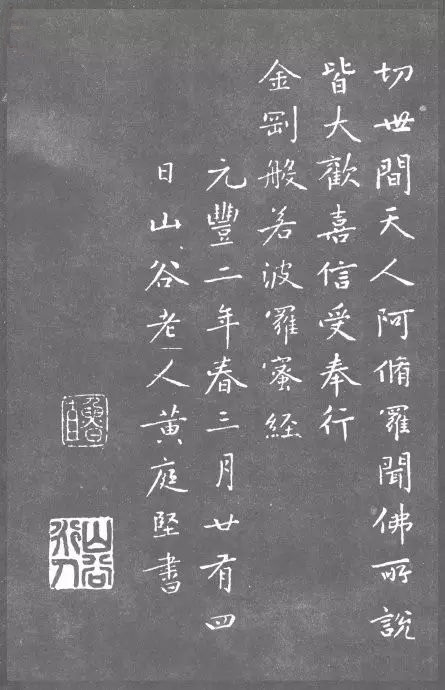 切世間天人阿脩羅聞佛所說
皆大歡喜信受奉行
金剛般若波羅蜜經
元豐二年春三月廿有四
日山谷老人黃庭堅書
魯直
山谷